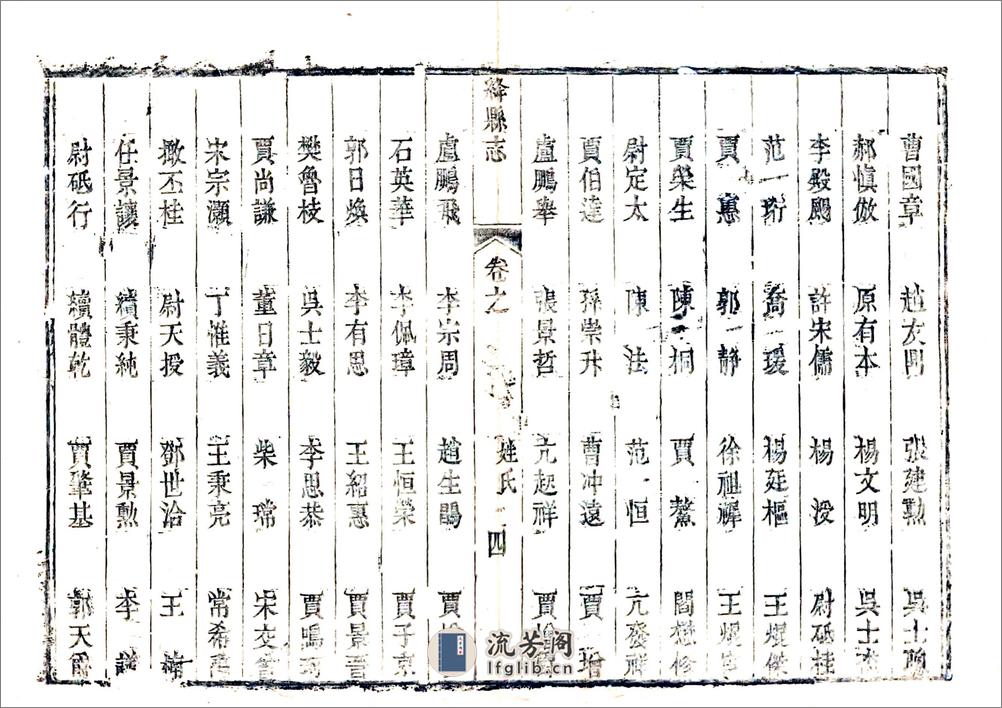 曹國章 趙友門 張建勲 吳士
郝慎倣 原有本 楊文明 吳士杰
李殿颺 許宋儒 楊浚 尉砥桂
范一珩 喬一瑗 楊廷樞 王焜傑
賈蕙 郭一靜 徐祖穉 王焜
賈榮生 陳一桐 賈鰲 閻懋修
尉定太 陳法 范恒 亢發祥
賈伯達 孫崇升 曹冲遠 賈
盧鵬舉 張景哲 亢起祥 賈
絳縣志 卷之 姓氏 四
盧鵬飛 李宗周 趙生鵾 賈
石英華 李佩璋 王恒榮 賈于京
郭日煥 李有思 王紹惠 賈景
樊魯枝 吳士毅 李思恭 賈鳴
賈尚謙 董日章 柴璸 宋交
宋宗灝 丁惟義 王秉亮 常希
撖丕桂 尉天授 鄧世洽 王
任景讓 續秉純 賈景勲 李
尉砥行 續體乾 賈肇基 郭天爵
流芳阁
lfglib.cn